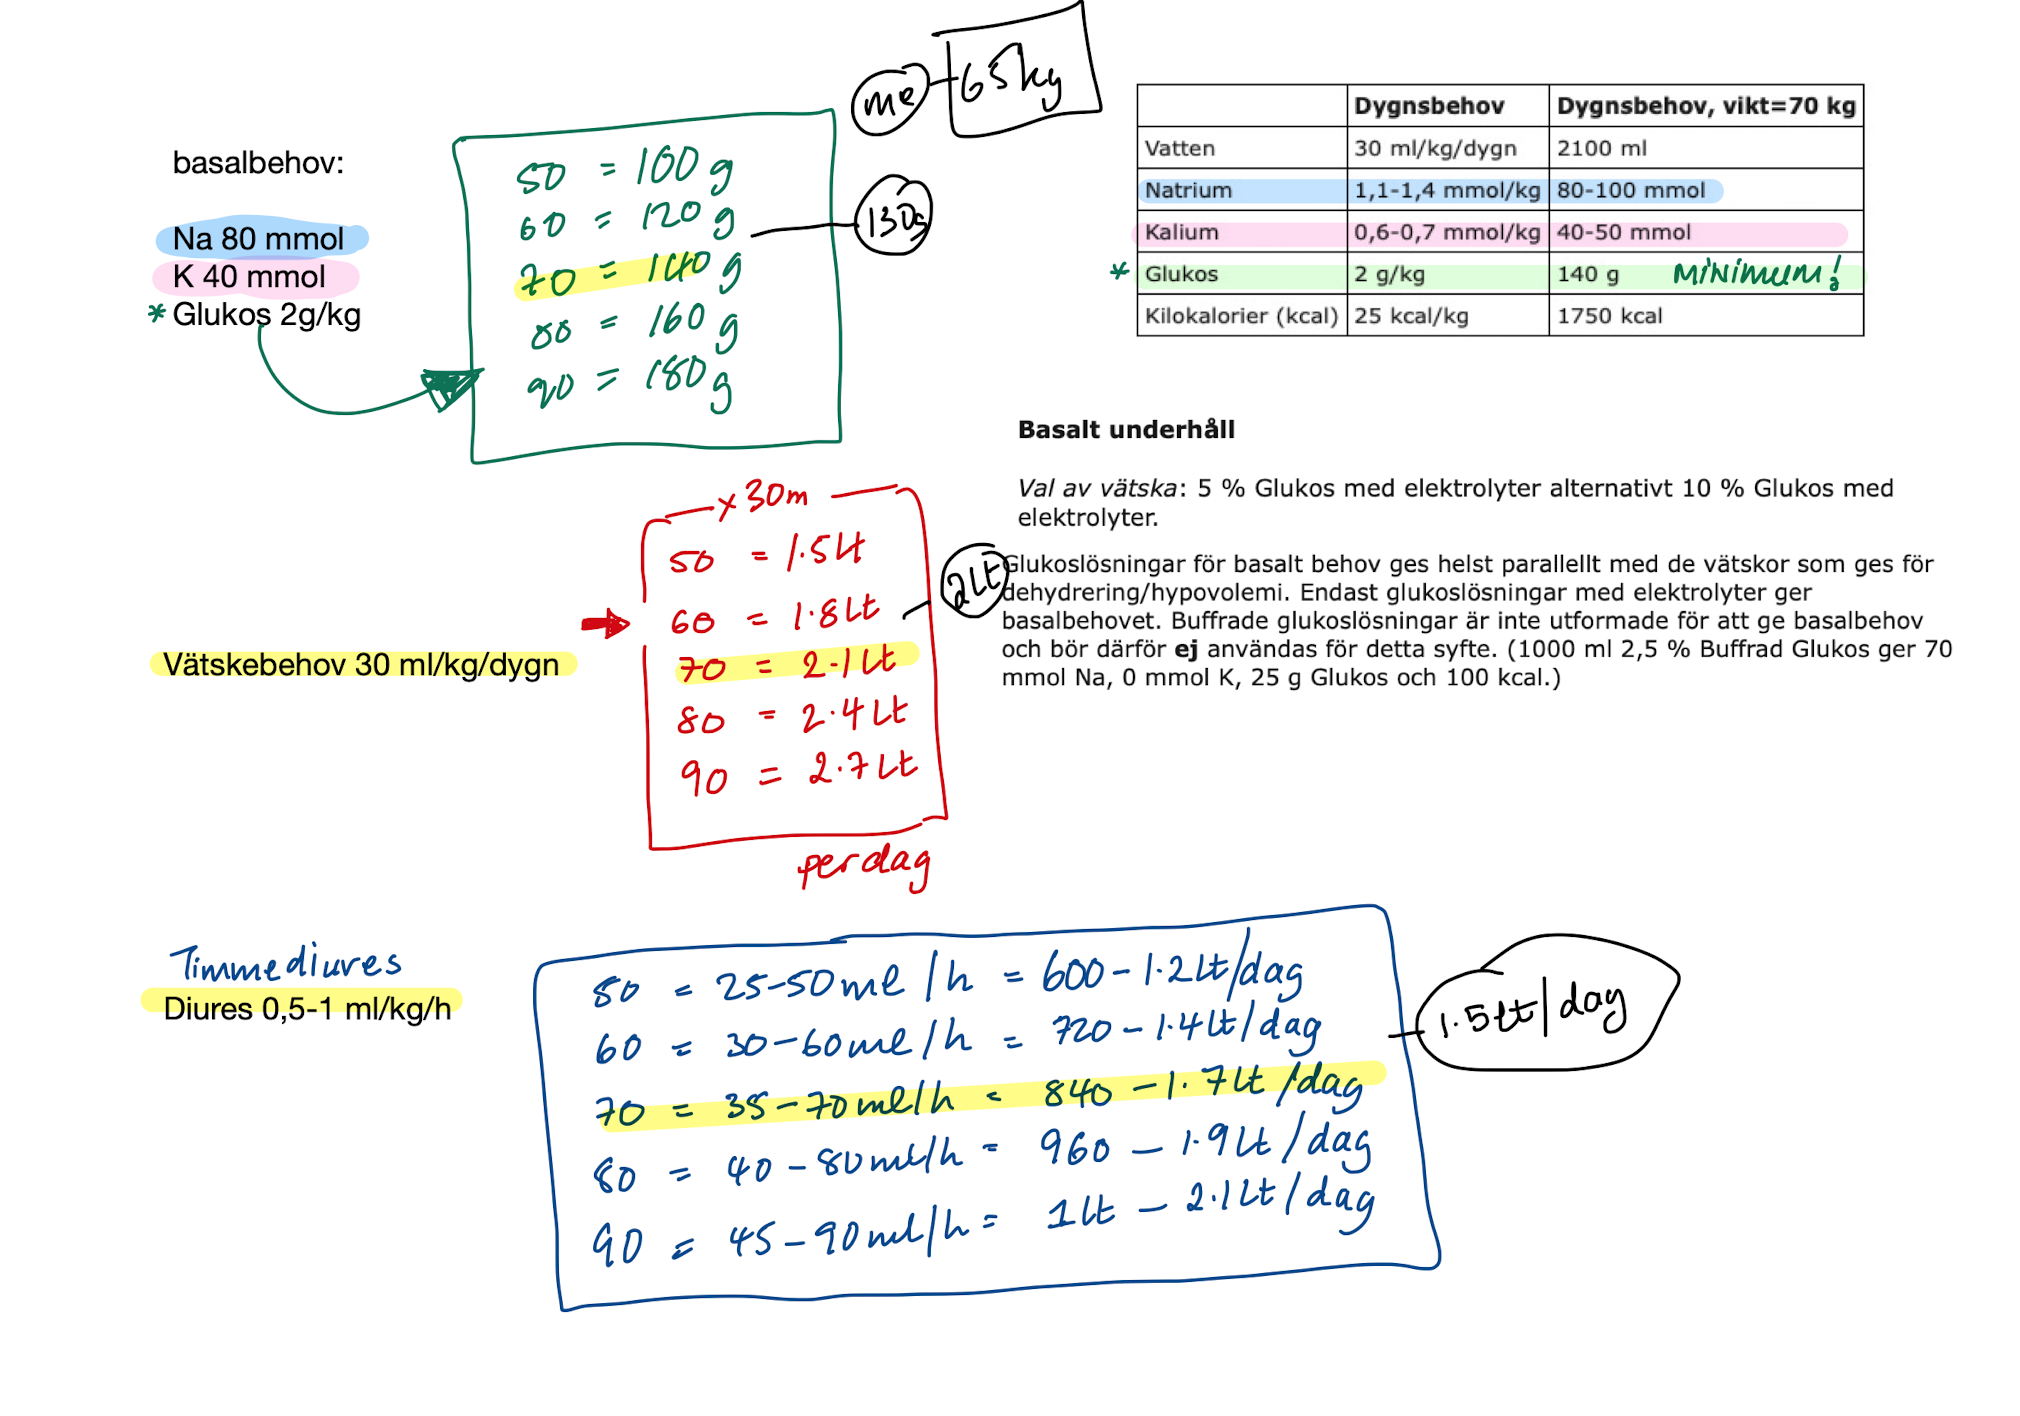 me 65kg
basalbehov:
Na 80 mmol
K 40 mmol
* Glukos 2g/kg
50 = 100 g
60 = 120 g
130g
70 = 140 g
80 = 160 g
90 = 180 g
Dygnsbehov Dygnsbehov, vikt=70 kg
Vatten 30 ml/kg/dygn 2100 ml
Natrium 1,1-1,4 mmol/kg 80-100 mmol
Kalium 0,6-0,7 mmol/kg 40-50 mmol
* Glukos 2 g/kg 140 g MINIMUM!
Kilokalorier (kcal) 25 kcal/kg 1750 kcal
Basalt underhåll
Val av vätska: 5 % Glukos med elektrolyter alternativt 10 % Glukos med
elektrolyter.
Glukoslösningar för basalt behov ges helst parallellt med de vätskor som ges för
dehydrering/hypovolemi. Endast glukoslösningar med elektrolyter ger
basalbehovet. Buffrade glukoslösningar är inte utformade för att ge basalbehov
och bör därför ej användas för detta syfte. (1000 ml 2,5 % Buffrad Glukos ger 70
mmol Na, 0 mmol K, 25 g Glukos och 100 kcal.)
Vätskebehov 30 ml/kg/dygn
x 30m
50 = 1.5Lt
60 = 1.8Lt
2Lt
70 = 2.1Lt
80 = 2.4Lt
90 = 2.7Lt
per dag
Timmediures
Diures 0,5-1 ml/kg/h
80 = 25-50ml/h = 600-1.2Lt/dag
60 = 30-60ml/h = 720-1.4Lt/dag
1.5Lt/dag
70 = 35-70ml/h = 840-1.7Lt/dag
80 = 40-80ml/h = 960-1.9Lt/dag
90 = 45-90ml/h = 1Lt-2.1Lt/dag